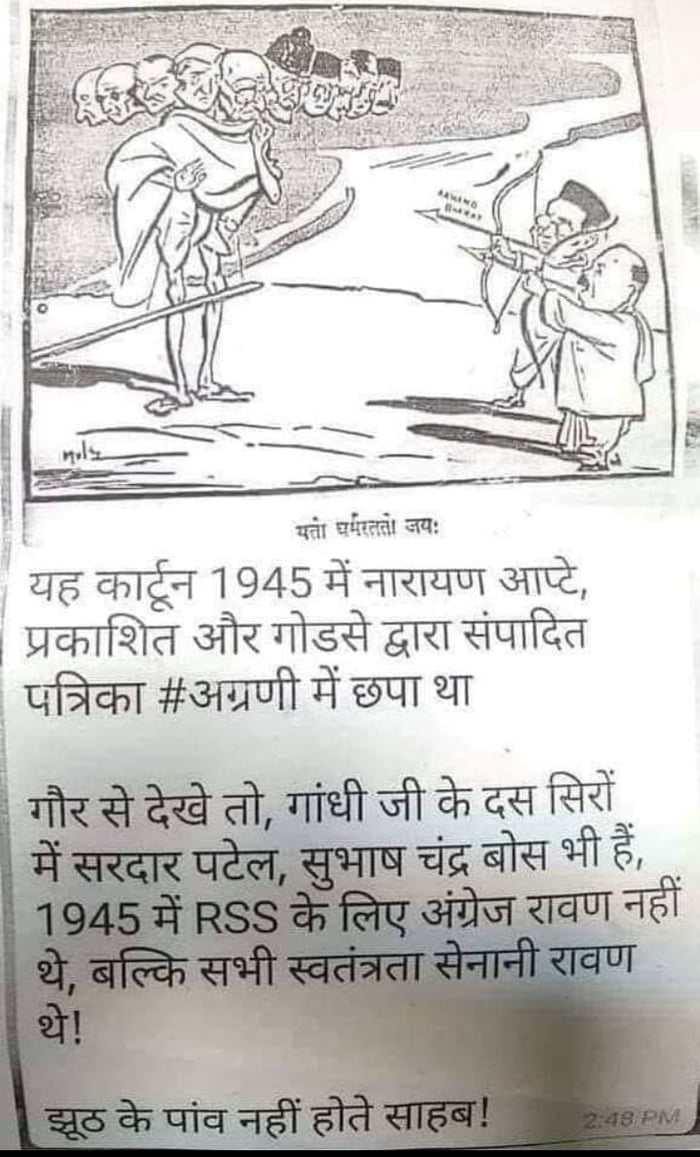 AKHAND
BHARAT
यतो धर्मस्ततो जयः
यह कार्टून 1945 में नारायण आप्टे,
प्रकाशित और गोडसे द्वारा संपादित
पत्रिका #अग्रणी में छपा था
गौर से देखे तो, गांधी जी के दस सिरों
में सरदार पटेल, सुभाष चंद्र बोस भी हैं,
1945 में RSS के लिए अंग्रेज रावण नहीं
थे, बल्कि सभी स्वतंत्रता सेनानी रावण
थे!
झूठ के पांव नहीं होते साहब!
2:48 PM